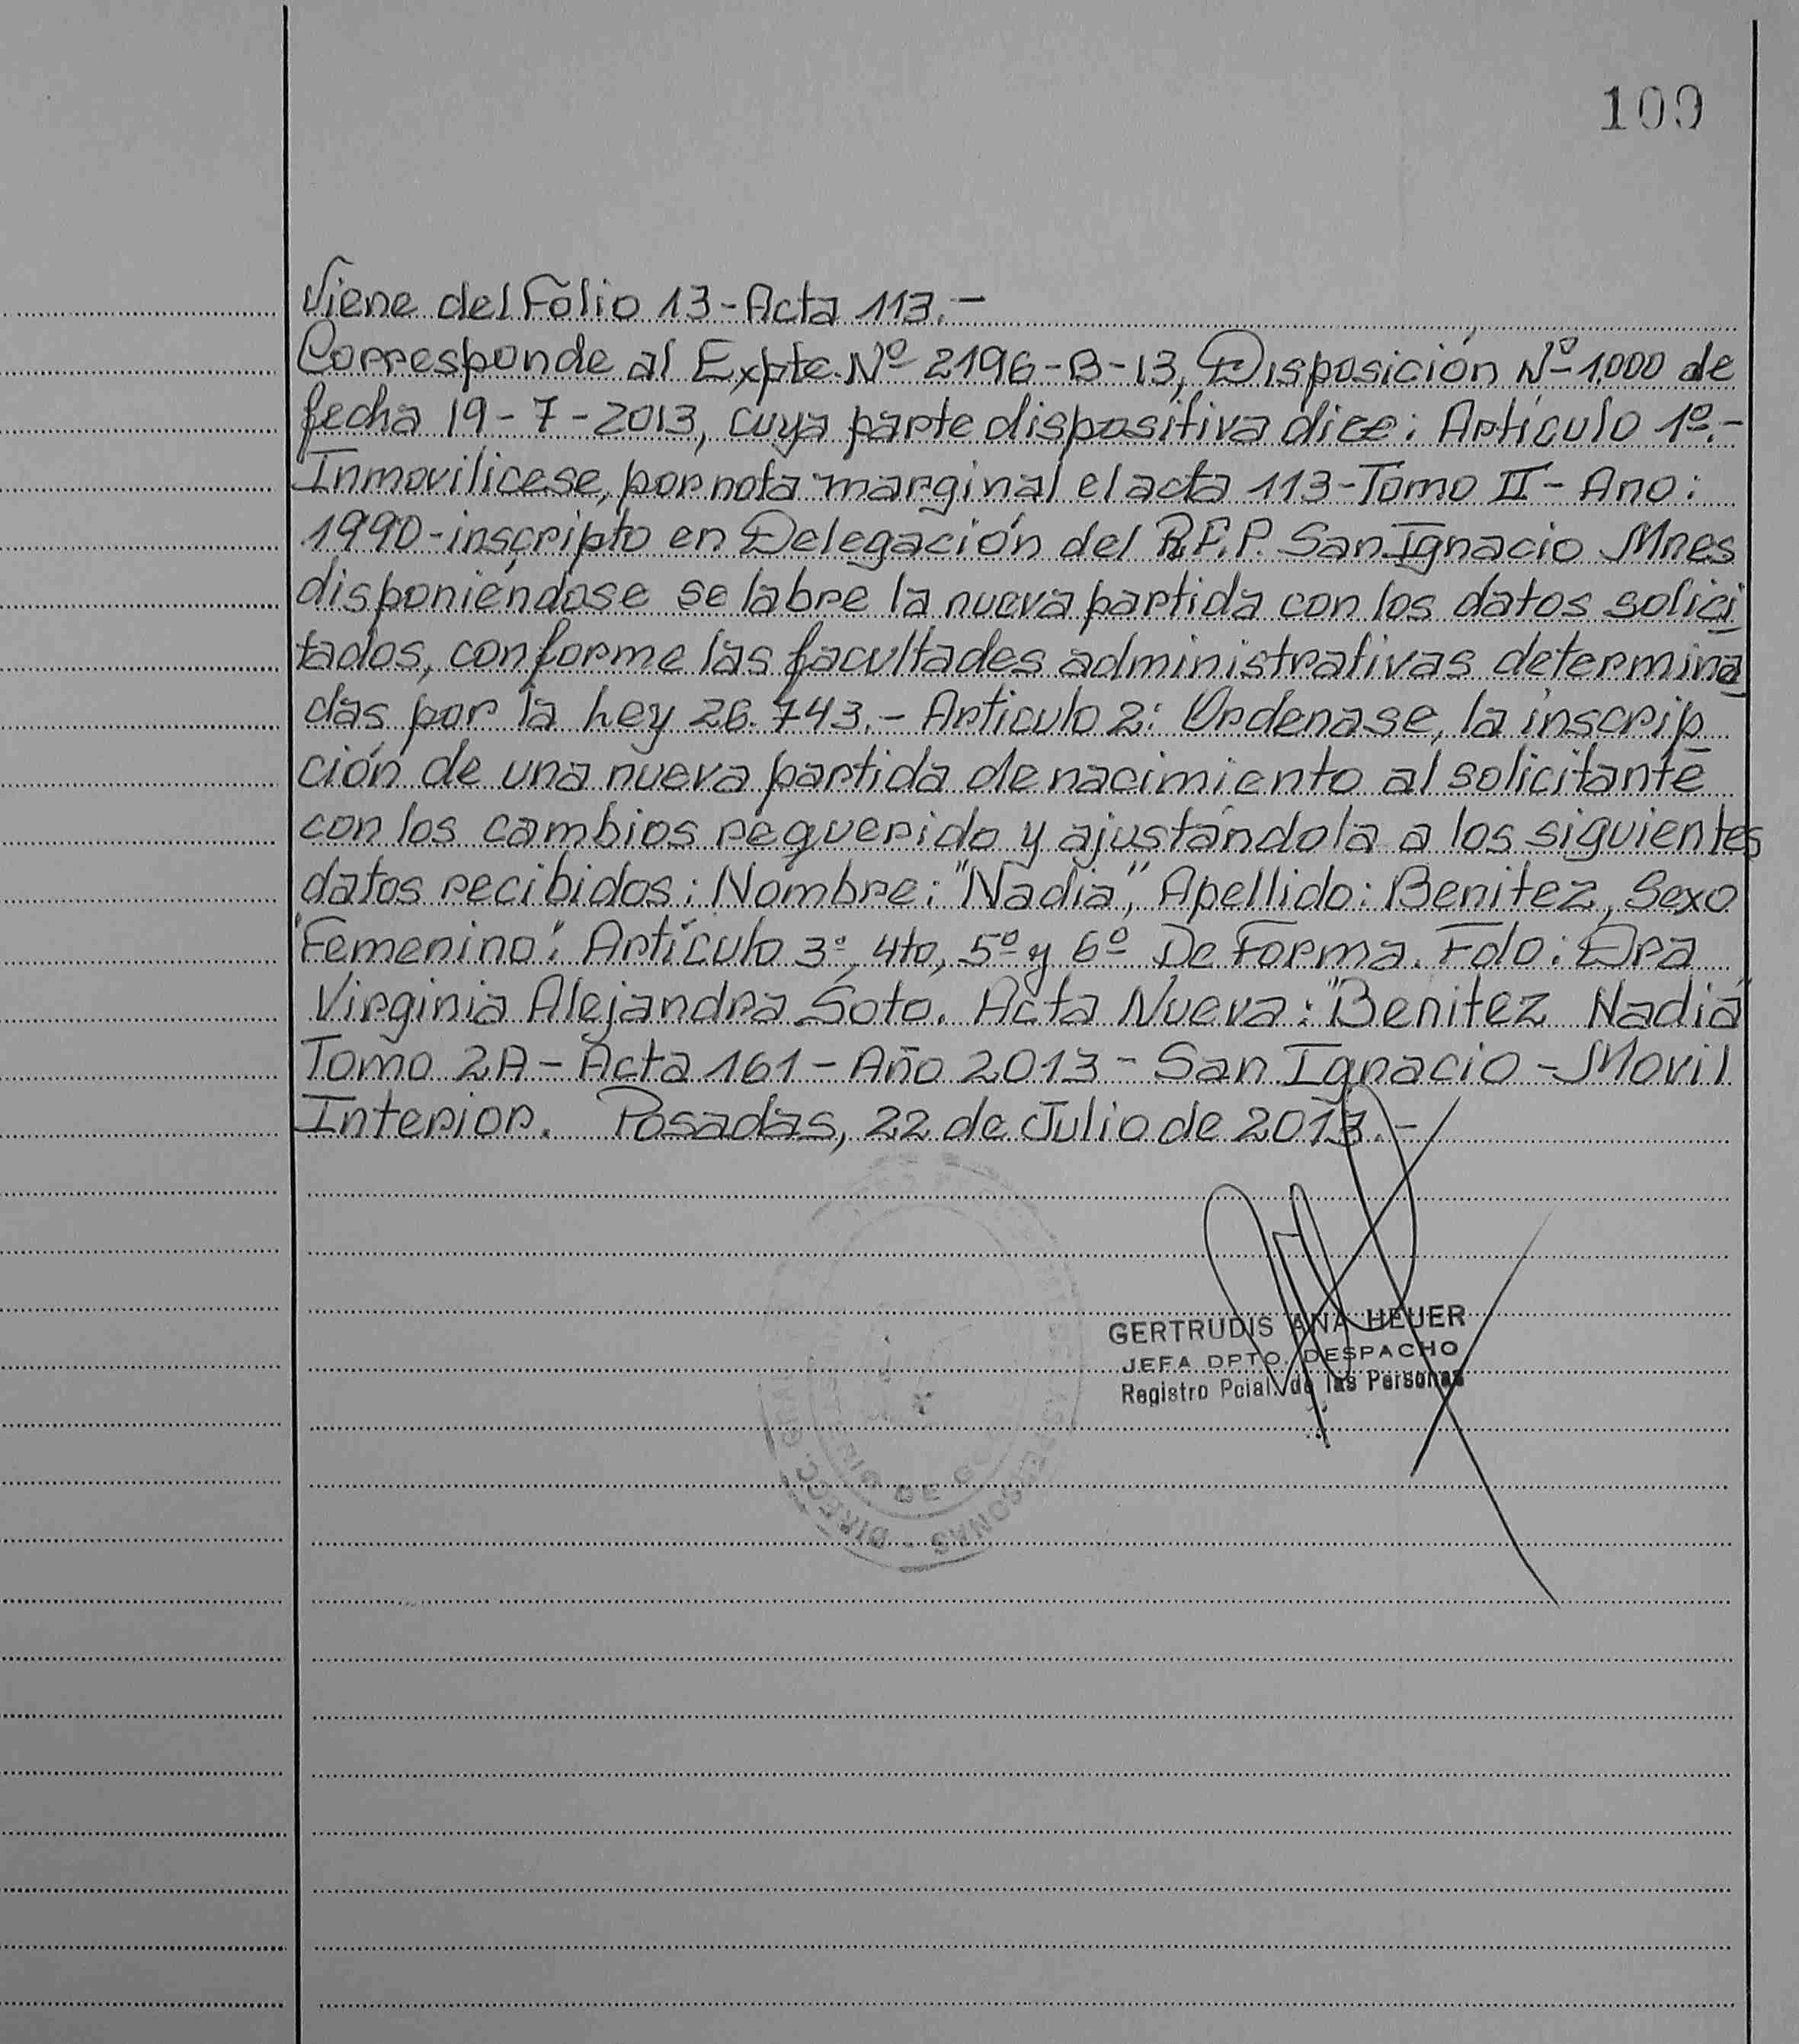 109
Viene del Folio 13-Acta 113.-
Corresponde al Expte. Nº 2196-B-13, Disposición Nº 1.000 de
fecha 19-7-2013, cuya parte dispositiva dice: Artículo 1º.-
Inmovilicese, por nota marginal el acta 113-Tomo II- Ano:
1990-inscripto en Delegación del R.P.P. San Ignacio Mnes
disponiéndose se labre la nueva partida con los datos solici
tados, conforme las facultades administrativas determina
das por la Ley 26.743.- Articulo 2: Ordenase, la inscrip
ción de una nueva partida de nacimiento al solicitante
con los cambios requerido y ajustándola a los siguientes
datos recibidos: Nombre: "Nadia", Apellido: Benitez, Sexo
"Femenino". Artículo 3º, 4to, 5º y 6º De Forma. Fdo: Dra
Virginia Alejandra Soto. Acta Nueva: "Benitez Nadia"
Tomo 2A - Acta 161 - Año 2013 - San Ignacio - Movil
Interior. Posadas, 22 de Julio de 2013.-
GERTRUDIS ANA HEUER
JEFA DPTO. DESPACHO
Registro Pcial. de las Personas